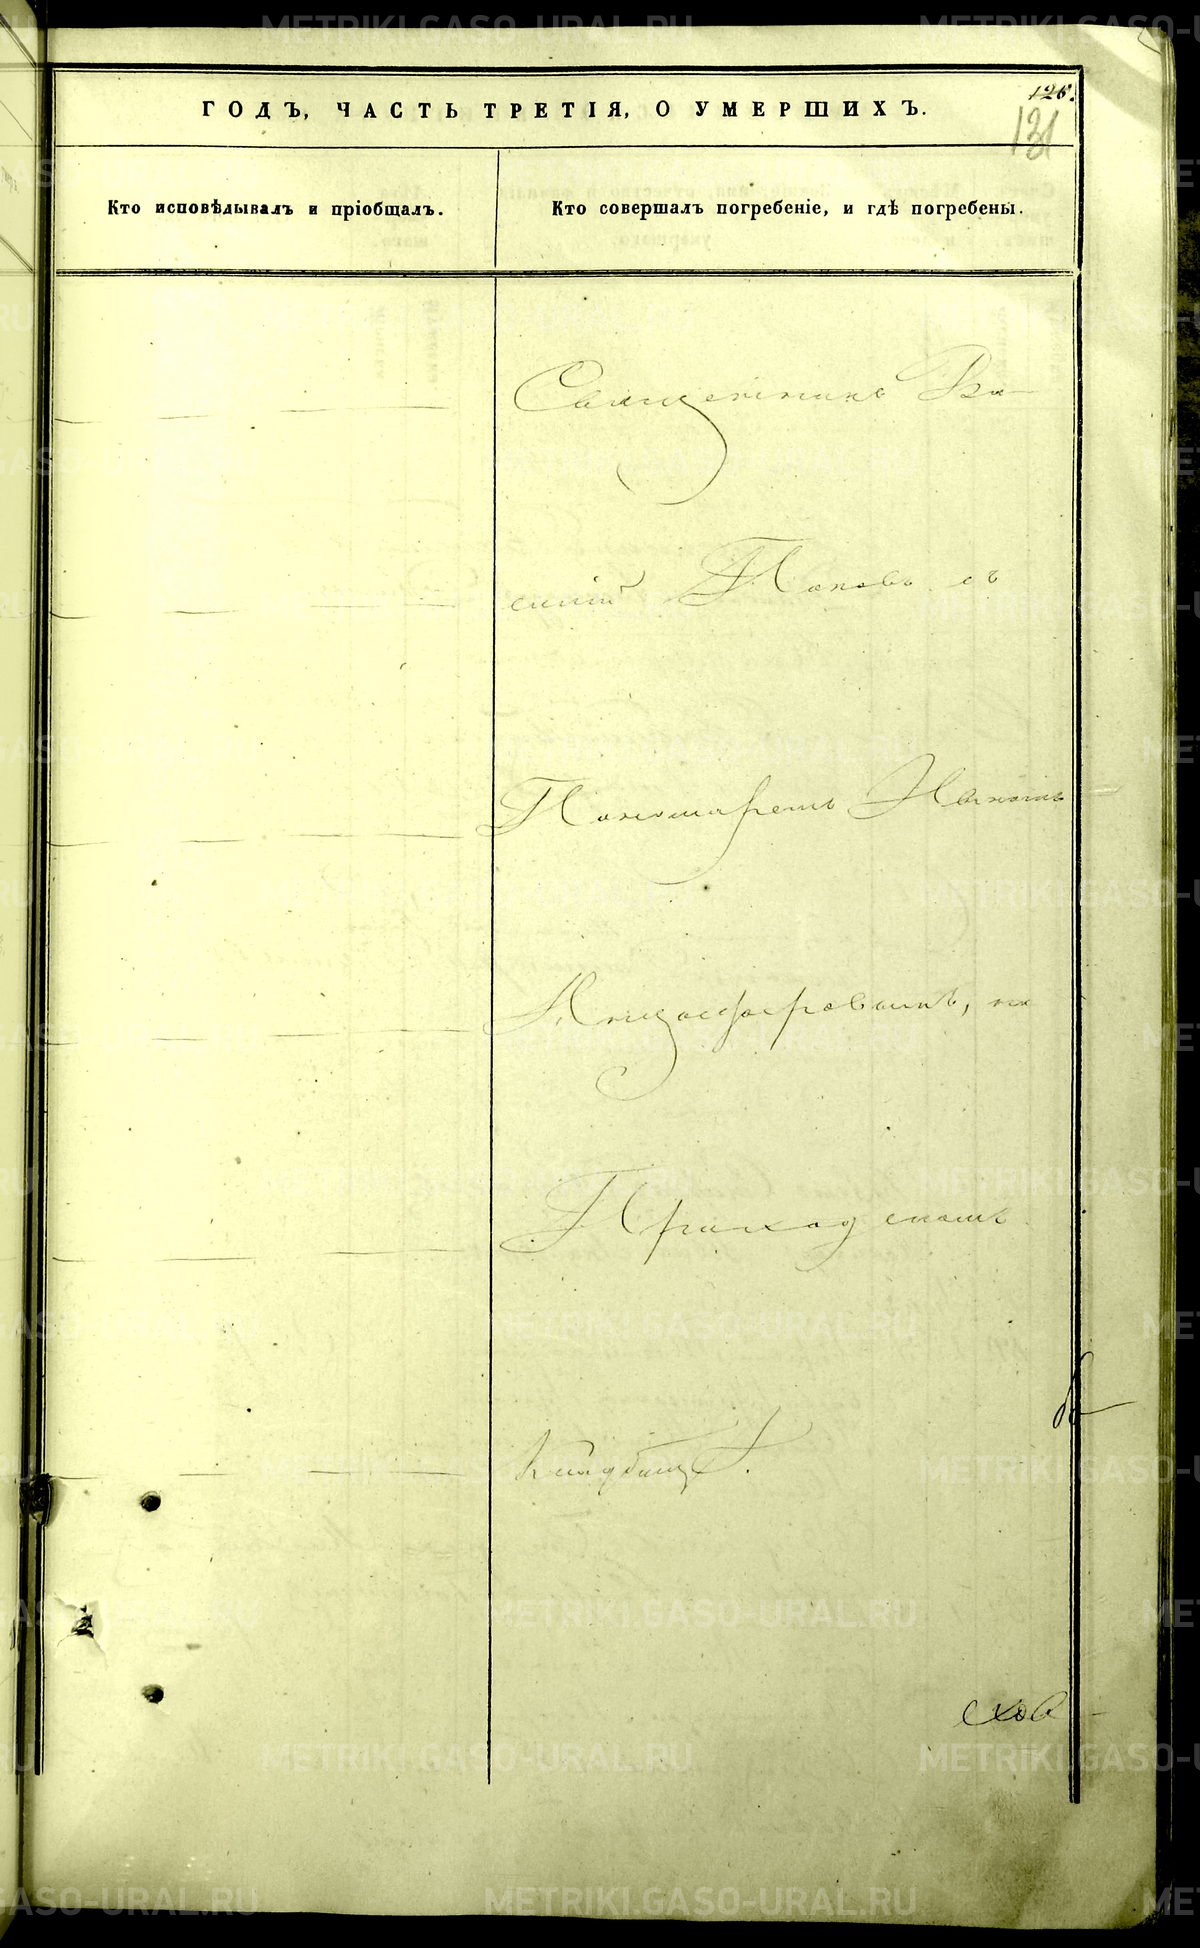 126.
131
ГОДЪ, ЧАСТЬ ТРЕТІЯ, О УМЕРШИХЪ.
Кто исповѣдывалъ и пріобщалъ.
Кто совершалъ погребеніе, и гдѣ погребены.
Священникъ Ва-
силій Поповъ съ
Пономаремъ
на
Приходскомъ
Кладбищѣ.
METRIKI.GASO-URAL.RU